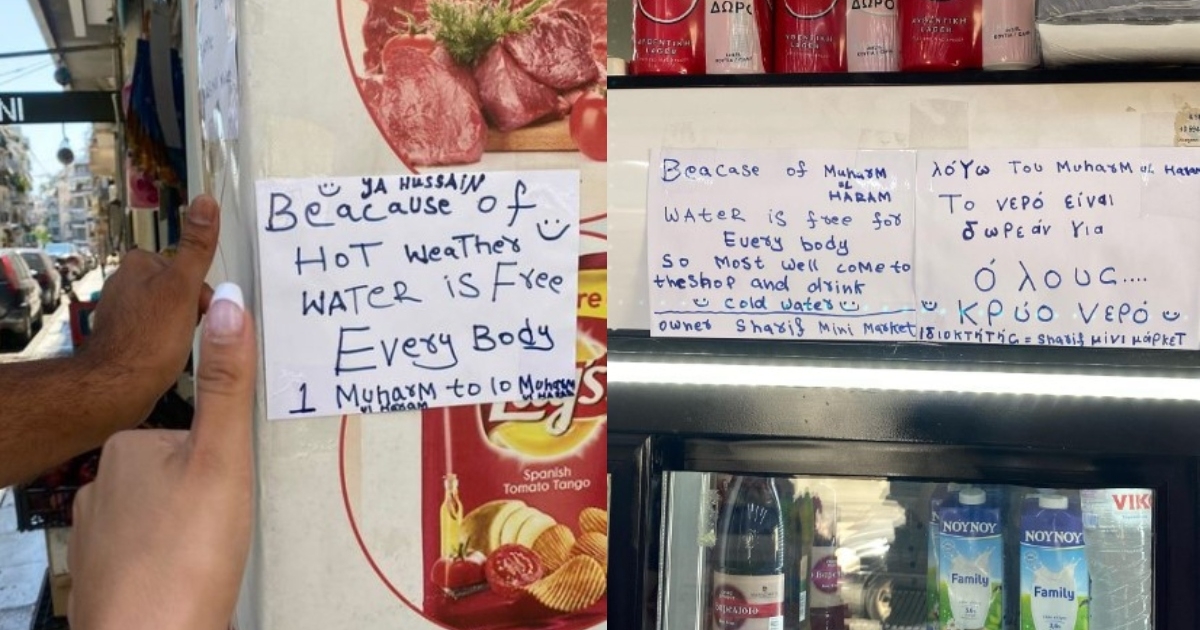 NI
YA HUSSAIN
Beacause of
HOT Weather
WATER is Free
Every Body
1 Muharm to 10 Muharm
ul HARAM
ul HARAM
re
Lay's
Spanish
Tomato Tango
ΔΩΡΟ
ΔΩΡΟ
ΑΥΘΕΝΤΙΚΗ
LAGER
ΑΥΘΕΝΤΙΚΗ
LAGER
Beacase of Muharm
UL
HARAM
WAter is free for
Every body
So Most well come to
the shop and drink
cold water
owner Sharif Mini Market
λόγω Του Muharm UL Haram
Το νερό είναι
δωρεάν για
όλους....
Κρύο Νερό
Ιδιοκτήτης = sharif μίνι μάρκετ
ΝΟΥΝΟΥ
Family
ΝΟΥΝΟΥ
Family
VIK